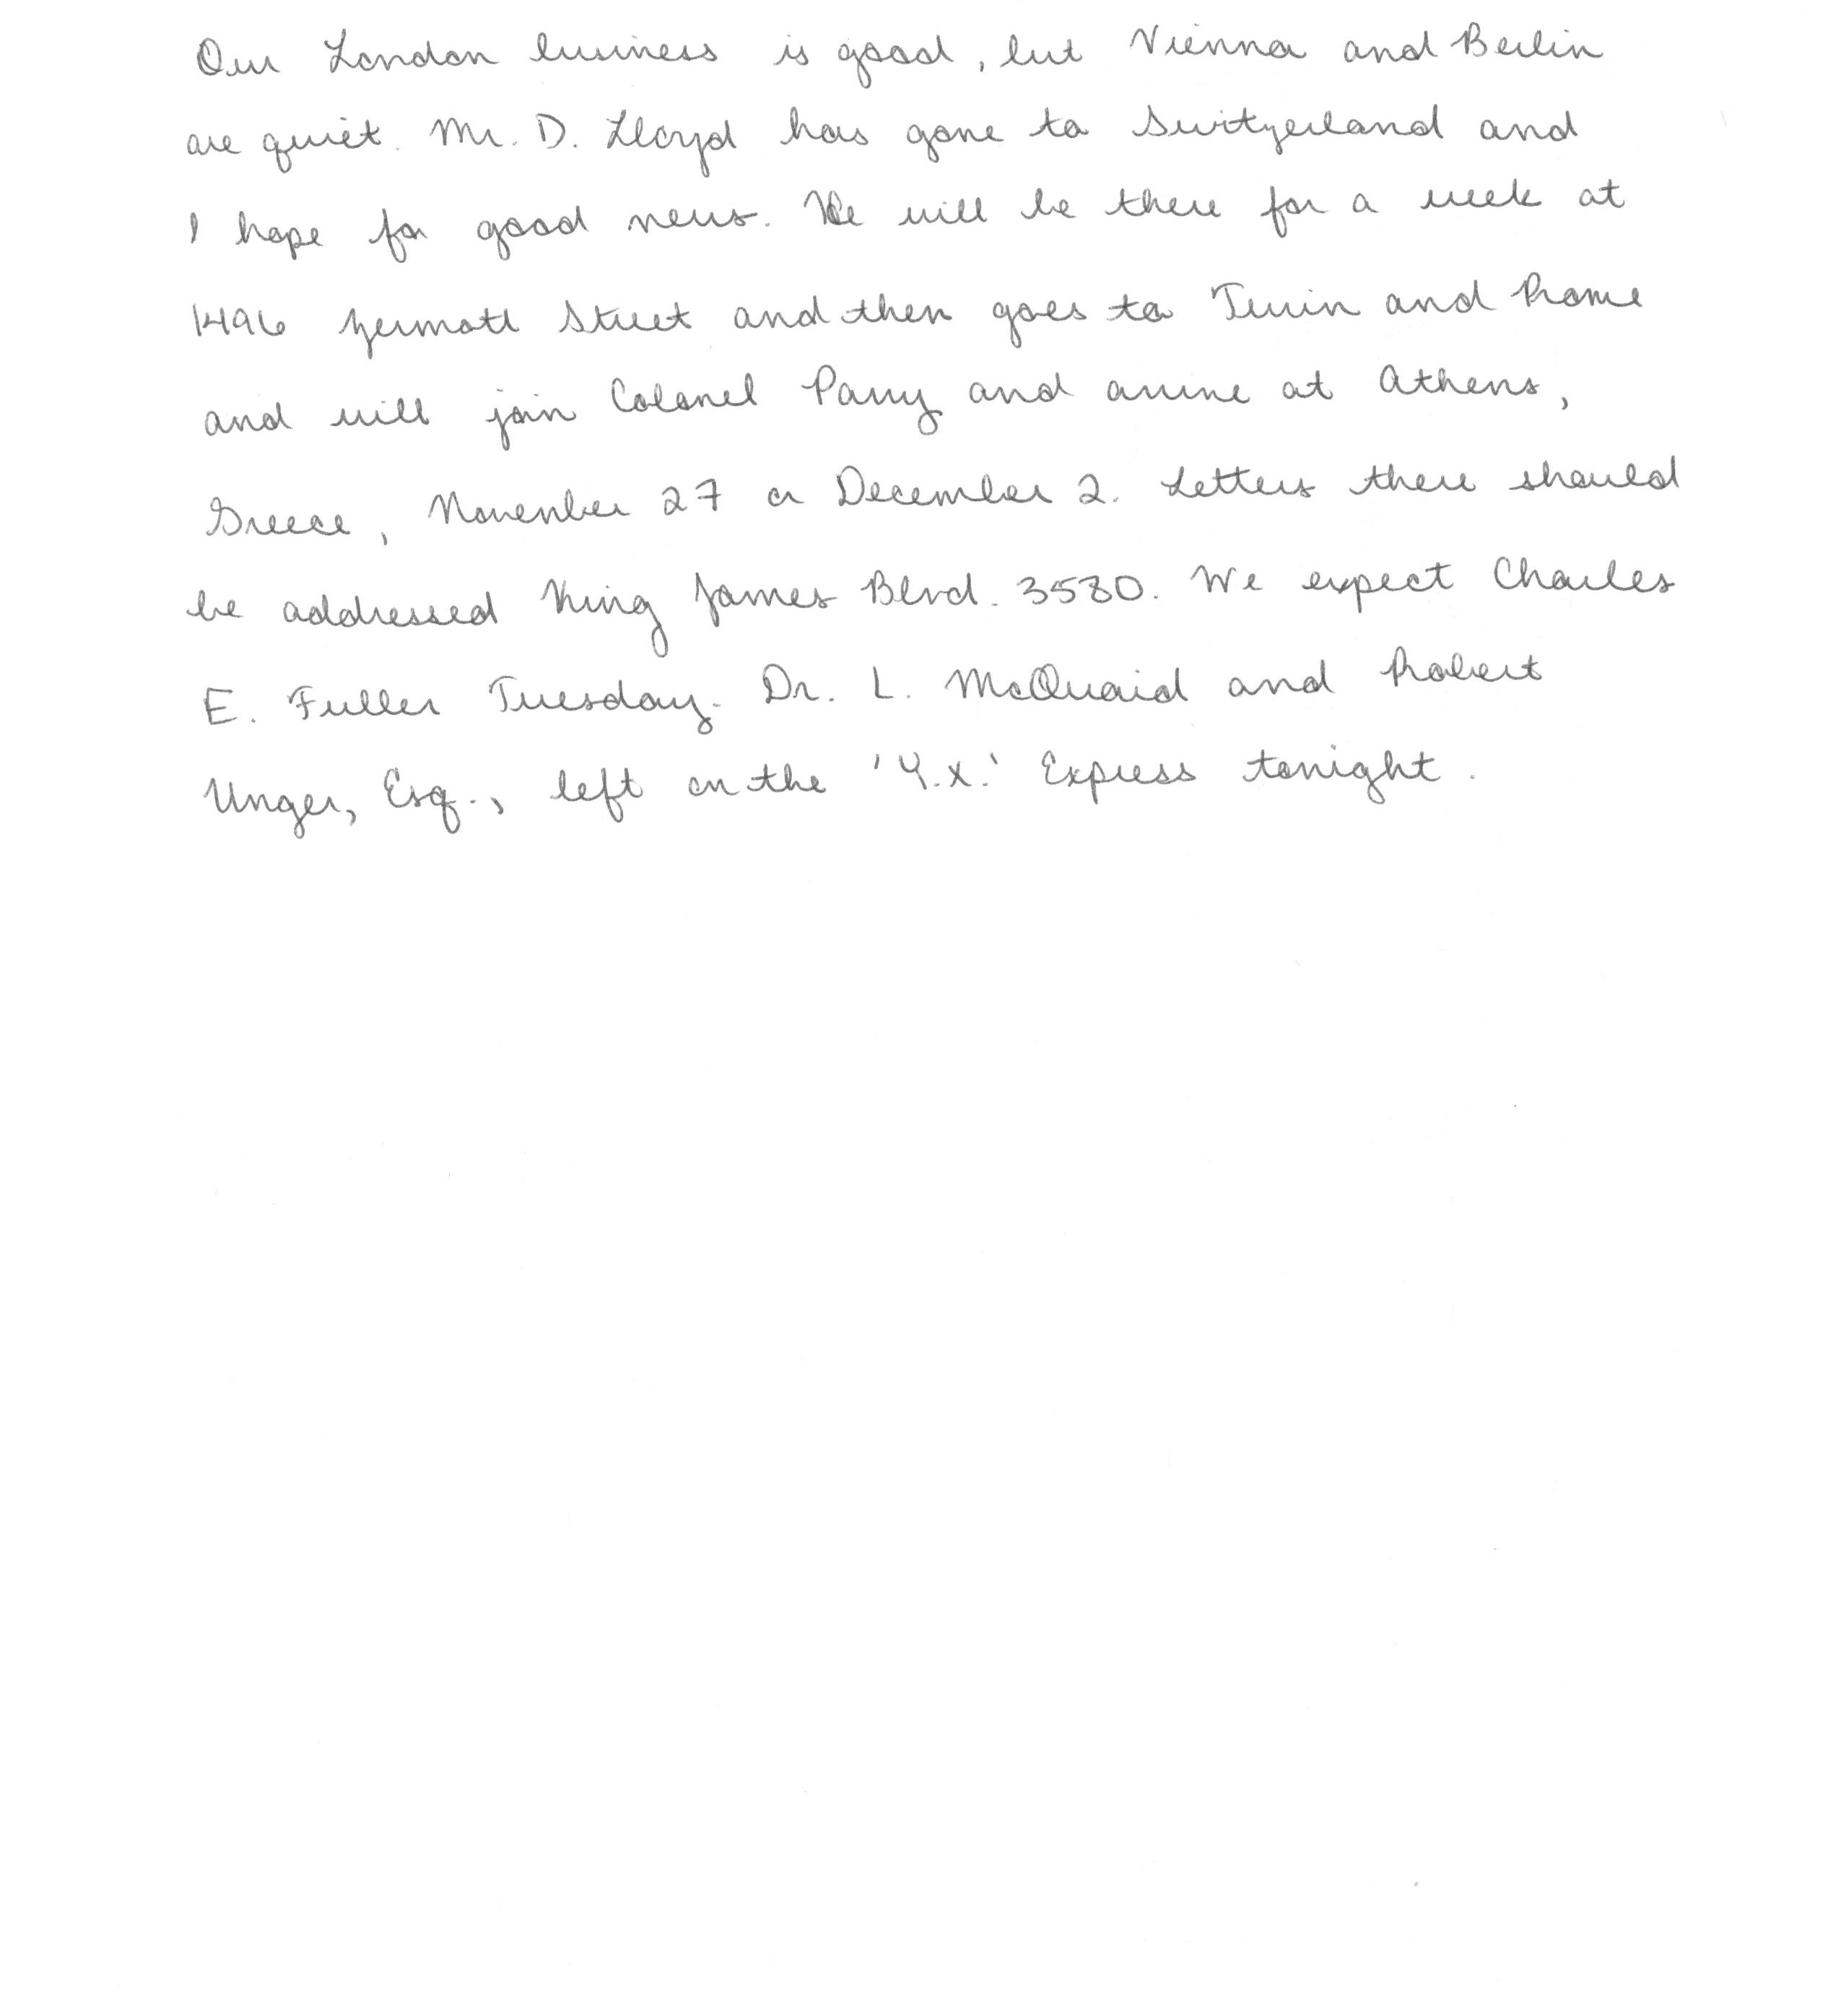 Our London business is good, but Vienna and Berlin
are quiet. Mr. D. Lloyd has gone to Switzerland and
I hope for good news. He will be there for a week at
1496 Zermott Street and then goes to Turin and Rome
and will join Colonel Parry and arrive at Athens,
Greece, November 27 or December 2. Letters there should
be addressed King James Blvd. 3580. We expect Charles
E. Fuller Tuesday. Dr. L. McQuaid and Robert
Unger, Esq., left on the 'Y.X.' Express tonight.